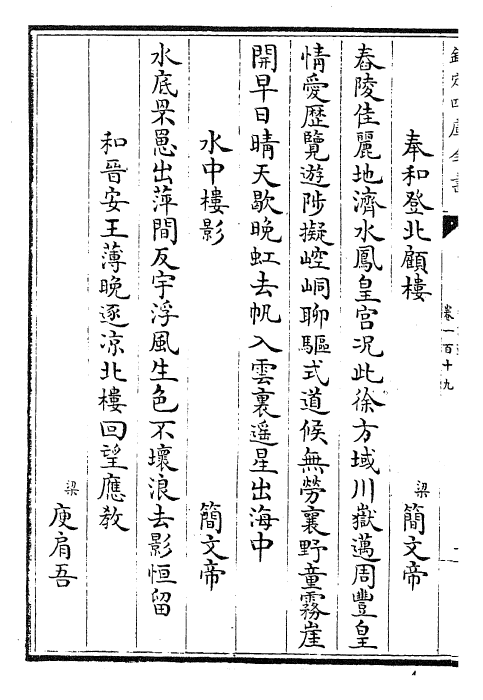 欽定四庫全書
卷一百十九
奉和登北顧樓 梁 簡文帝
春陵佳麗地濟水鳳皇宮况此徐方域川嶽邁周豐皇
情愛歷覽遊陟擬崆峒聊驅式道候無勞襄野童霧崖
開早日晴天歇晚虹去帆入雲裏遥星出海中
水中樓影 簡文帝
水底罘罳出萍間反宇浮風生色不壞浪去影恒留
和晉安王薄晚逐凉北樓回望應教
梁 庾肩吾